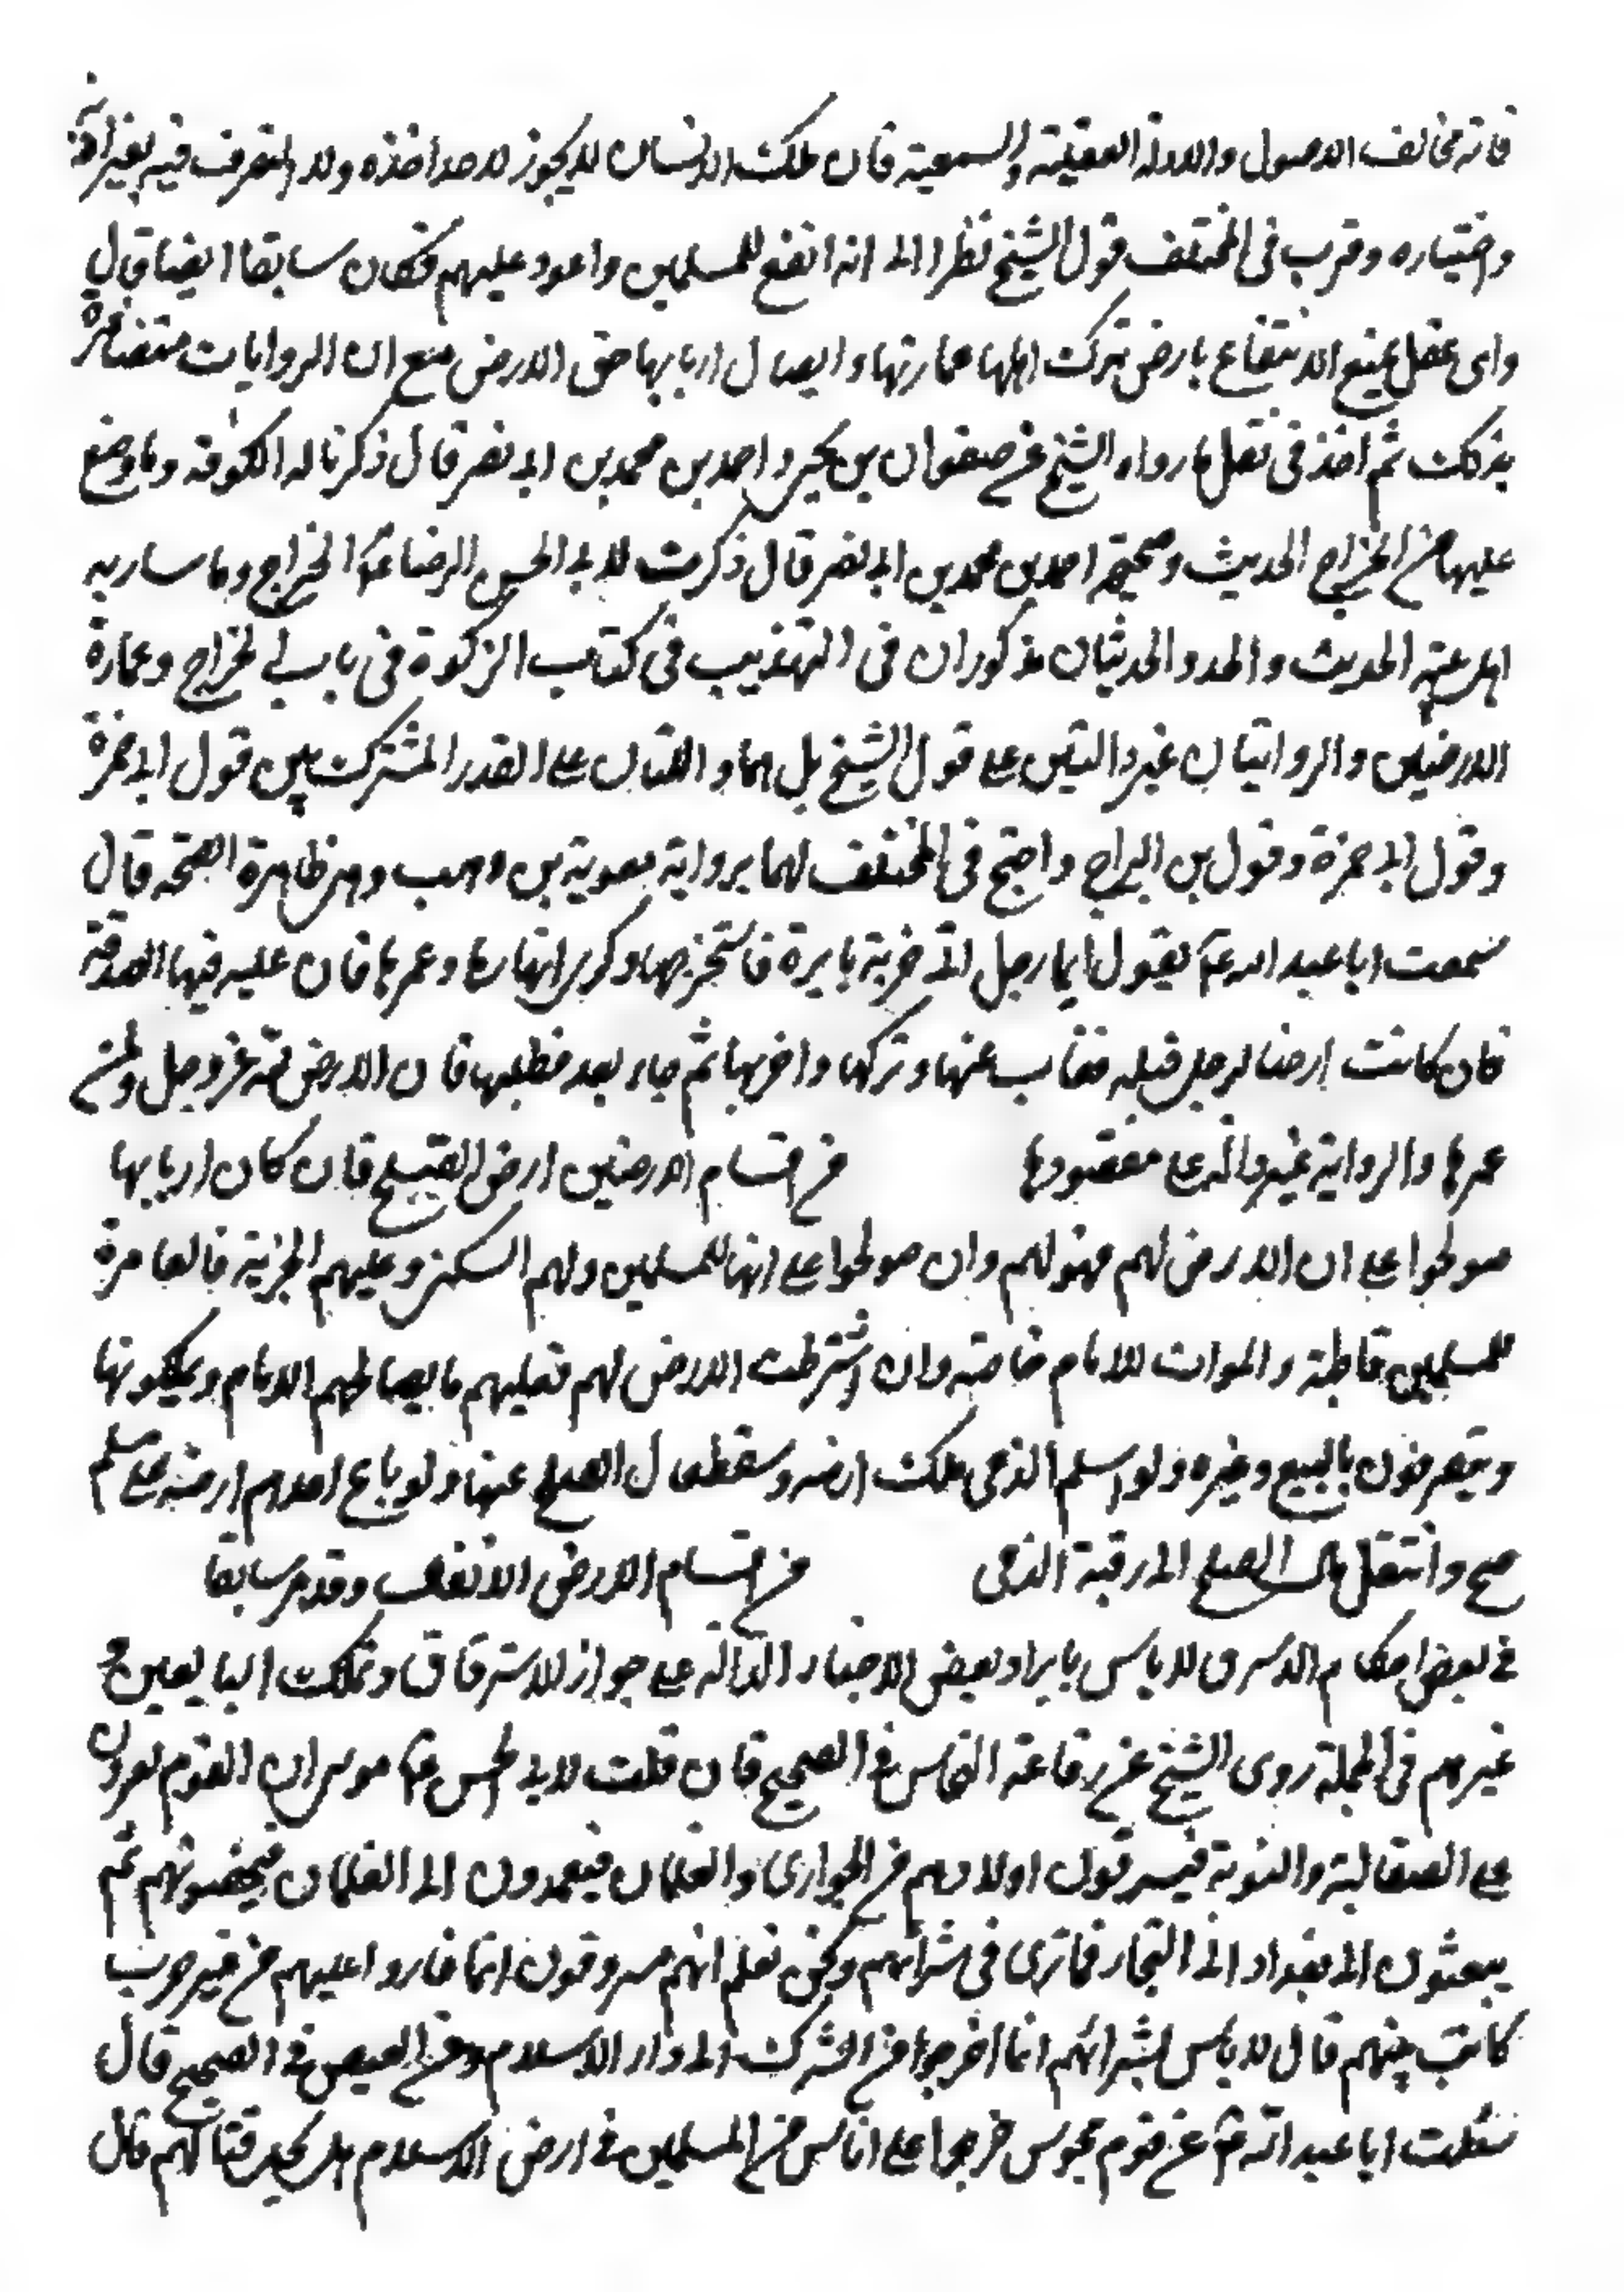 فانه مخالف الاصول والادلة العقلية والسمعية فان ملك الانسان لا يجوز لاحد اخذه ولا التصرف فيه بغير اذنه
واختياره وقرب فى المختلف قول الشيخ نظرا الى انه انفع للمسلمين واعود عليهم فكان سابقا ايضا قال
واى عقل يمنع الانتفاع بارض ترك اهلها عمارتها وايصال اربابها حق الارض مع ان الروايات متضافرة
بذلك ثم اخذ فى نقل ما رواه الشيخ عن صفوان بن يحيى واحمد بن محمد بن ابى نصر قال ذكرنا له الكوفة وما وضع
عليها من الخراج الحديث وصحيحة احمد بن محمد بن ابى نصر قال ذكرت لابى الحسن الرضا ع الخراج وما سار به
اهل بيته الحديث والحديثان مذكوران فى التهذيب فى كتاب الزكوة فى باب الخراج وعمارة
الارضين والروايتان غير دالتين على قول الشيخ بل هما دالتان على القدر المشترك بين قول ابى حمزة
وقول ابى حمزة وقول بن البراج واحتج فى المختلف لهما برواية معوية بن وهب وهى ظاهرة الصحة قال
سمعت ابا عبد الله ع يقول ايما رجل اتى خربة بايرة فاستخرجها وكرى انهارها وعمرها فان عليه فيها الصدقة
فان كانت ارضا لرجل قبله فغاب عنها وتركها واخربها ثم جاء بعد فطلبها فان الارض لله عز وجل ولمن
عمرها والرواية غير دالة على مقصودها من اقسام الارضين ارض الصلح فان كان اربابها
صولحوا على ان الارض لهم فهو لهم وان صولحوا على انها للمسلمين ولهم السكنى وعليهم الجزية فالعامرة
للمسلمين قاطبة والموات للامام خاصة وان اشترطت الارض لهم فعليهم ما يصالحهم الامام ويملكونها
ويتصرفون بالبيع وغيره ولو اسلم الذمى ملك ارضه وسقط مال الصلح عنها ولو باع احدهم ارضه على مسلم
صح وانتقل مال الصلح الى رقبة الذمى من اقسام الارض الانفال وقد مر سابقا
فى بعض احكام الاسرى لا باس بايراد بعض الاخبار الدالة على جواز الاسترقاق وتملك البايعين
غيرهم فى الجملة روى الشيخ عن رفاعة النخاس فى الصحيح قال قلت لابى الحسن ع موسى ان القوم يغزون
على الصقالبة والنوبة فيسرقون اولادهم من الجوارى والغلمان فيعمدون الى الغلمان فيخصونهم ثم
يبعثون الى بغداد الى التجار فما ترى فى شرائهم ونحن نعلم انهم مسروقون انما غاروا عليهم من غير حرب
كانت بينهم قال لا باس بشرائهم انما اخرجوا من الشرك الى دار الاسلام وعن العيص فى الصحيح قال
سئلت ابا عبد الله ع عن قوم مجوس خرجوا على اناس من المسلمين فى ارض الاسلام هل يحل قتالهم قال